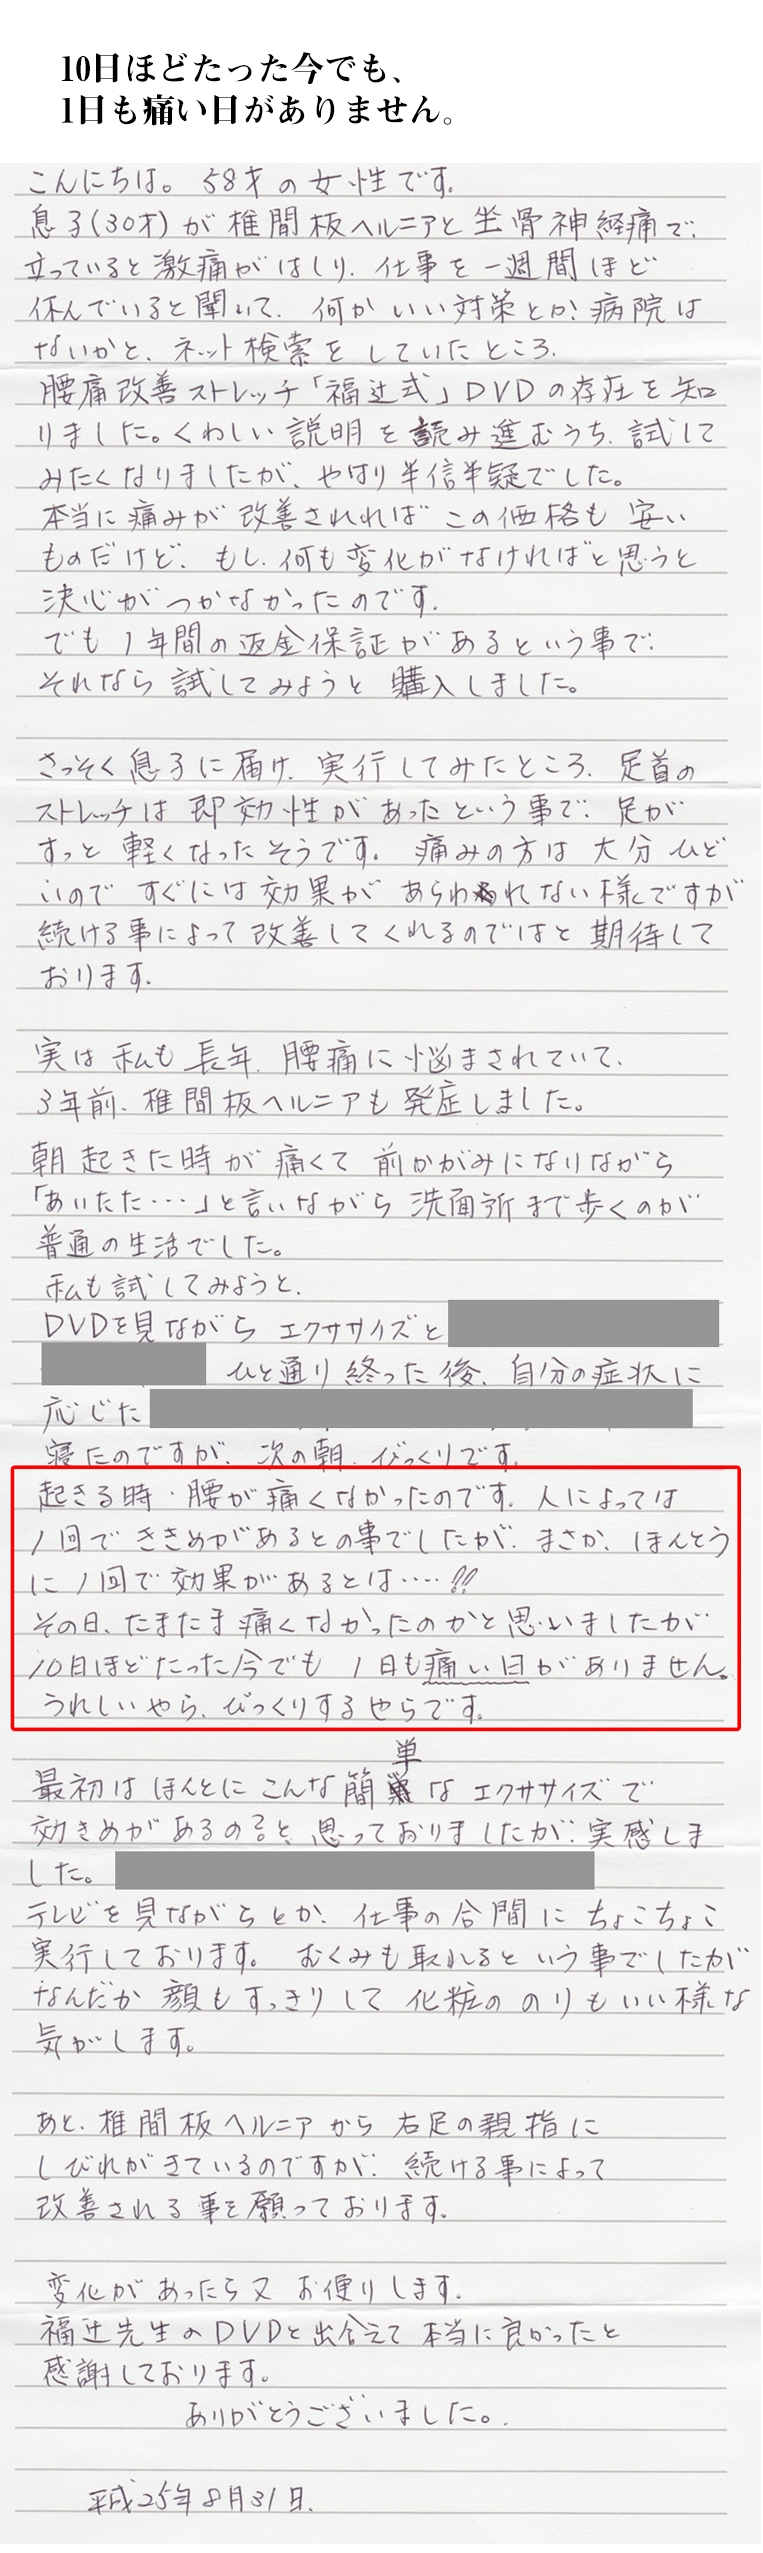 10日ほどたった今でも、
1日も痛い日がありません。
こんにちは。58才の女性です。
息子(30才)が椎間板ヘルニアと坐骨神経痛で、
立っていると激痛がはしり、仕事を一週間ほど
休んでいると聞いて、何かいい対策とか、病院は
ないかと、ネット検索をしていたところ、
腰痛改善ストレッチ「福辻式」DVDの存在を知
りました。くわしい説明を読み進むうち、試して
みたくなりましたが、やはり半信半疑でした。
本当に痛みが改善されればこの価格も安い
ものだけど、もし、何も変化がなければと思うと
決心がつかなかったのです。
でも1年間の返金保証があるという事で、
それなら試してみようと購入しました。
さっそく息子に届け、実行してみたところ、足首の
ストレッチは即効性があったという事で、足が
すっと軽くなったそうです。痛みの方は大分ひど
いのですぐには効果があらわれない様ですが
続ける事によって改善してくれるのではと期待して
おります。
実は私も長年、腰痛に悩まされていて、
3年前、椎間板ヘルニアも発症しました。
朝起きた時が痛くて前かがみになりながら
「あいたた・・・」と言いながら洗面所まで歩くのが
普通の生活でした。
私も試してみようと、
DVDを見ながらエクササイズと
ひと通り終った後、自分の症状に
応じた
寝たのですが、次の朝、びっくりです。
起きる時、腰が痛くなかったのです。人によっては
1回でききめがあるとの事でしたが、まさか、ほんとう
に1回で効果があるとは・・・・!!
その日、たまたま痛くなかったのかと思いましたが
10日ほどたった今でも1日も痛い日がありません。
うれしいやら、びっくりするやらです。
最初はほんとにこんな簡単なエクササイズで
効きめがあるの?と、思っておりましたが、実感しま
した。
テレビを見ながらとか、仕事の合間にちょこちょこ
実行しております。むくみも取れるという事でしたが
なんだか顔もすっきりして化粧ののりもいい様な
気がします。
あと、椎間板ヘルニアから右足の親指に
しびれがきているのですが、続ける事によって
改善される事を願っております。
変化があったら又お便りします。
福辻先生のDVDと出合えて本当に良かったと
感謝しております。
ありがとうございました。
平成25年8月31日.